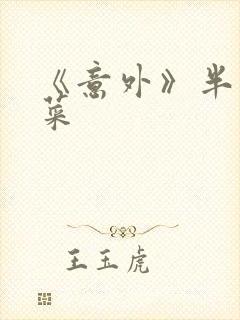 《意外》半
菜
王玉虎